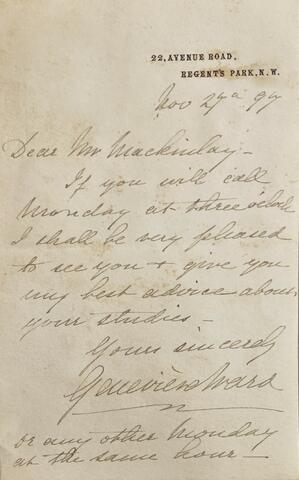 22, AVENUE ROAD,
REGENT'S PARK, N.W.
Nov 27th 97
Dear Mr Mackinlay –
If you will call
Monday at three o'clock
I shall be very pleased
to see you & give you
my best advice about
your studies –
Yours sincerely
Geneviève Ward
or any other Monday
at the same hour –